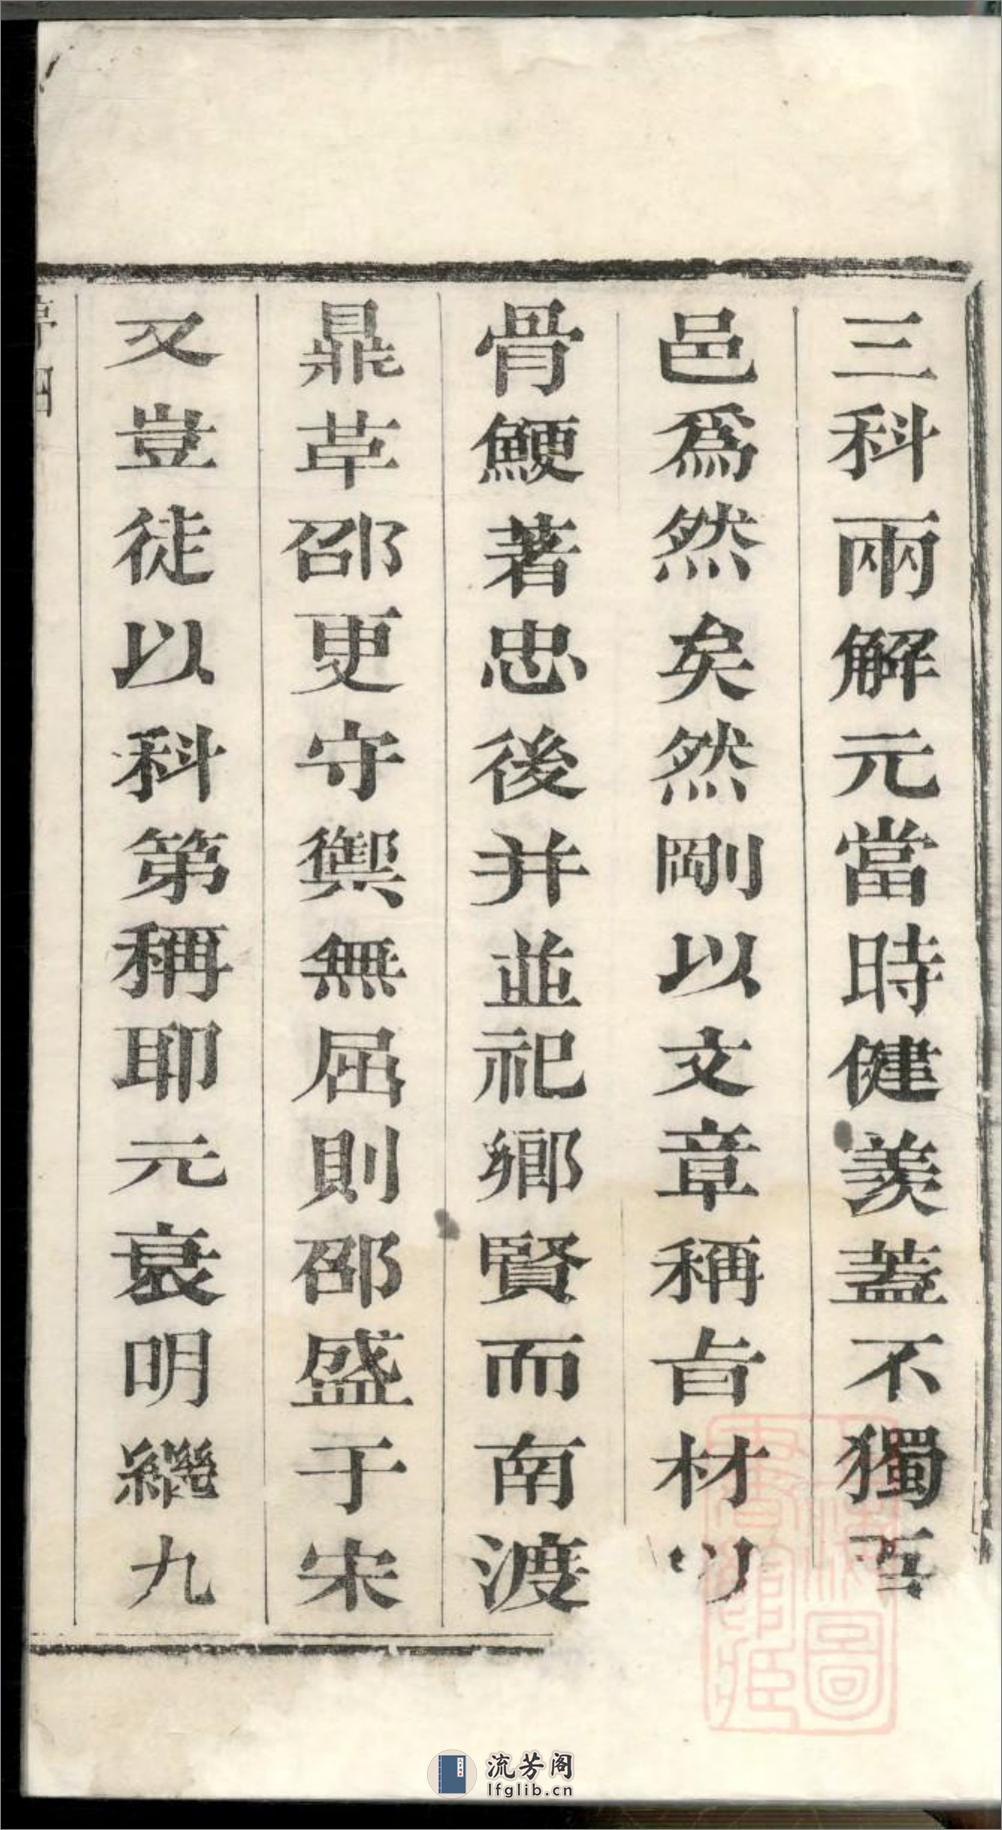 三科兩解元當時健羨蓋不獨吾
邑爲然矣然剛以文章稱旨材以
骨鯁著忠後并並祀鄉賢而南渡
鼎革邵更守禦無屈則邵盛于宋
又豈徒以科第稱耶元衰明繼九
上海圖書館藏
流芳阁
lfglib.cn